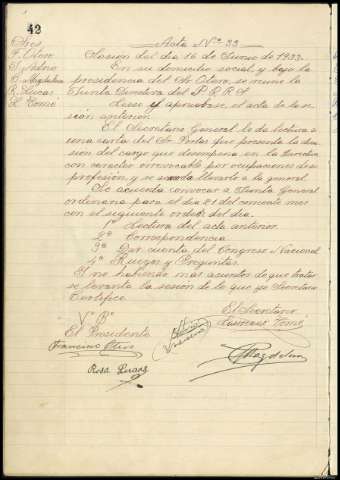 42
Sres
Acta Nº 33
F. Otero
Sesión del dia 16 de Junio de 1933.
En su domicilio social, y bajo la
C. Magdalena
presidencia del Sr. Otero, se reune la
R. Lucas
Junta Directiva del P R R S
H. Tomé
Lesse y apruebase, el acta de la se
sión anterior.
El Secretario General da lectura a
una carta del Sr. Portas que presenta la dimi
sión del cargo que desempeña en la Directiva
con caracter irrevocable por ocupaciones de su
profesión, y se acuerda llevarlo a la general
Se acuerda convocar a Junta General
ordinaria para el dia 21 del corriente mes
con el siguiente orden del dia.
1º Lectura del acta anterior.
2º Correspondencia.
3º Dar cuenta del Congreso Nacional
4º Ruegos y Preguntas.
Y no habiendo más asuntos de que tratar
se levanta la sesión de lo que yo Secretario
Certifico.
El Secretario
Vº Bº
El Presidente
Francisco Otero
Magdalena
Rosa Lucas